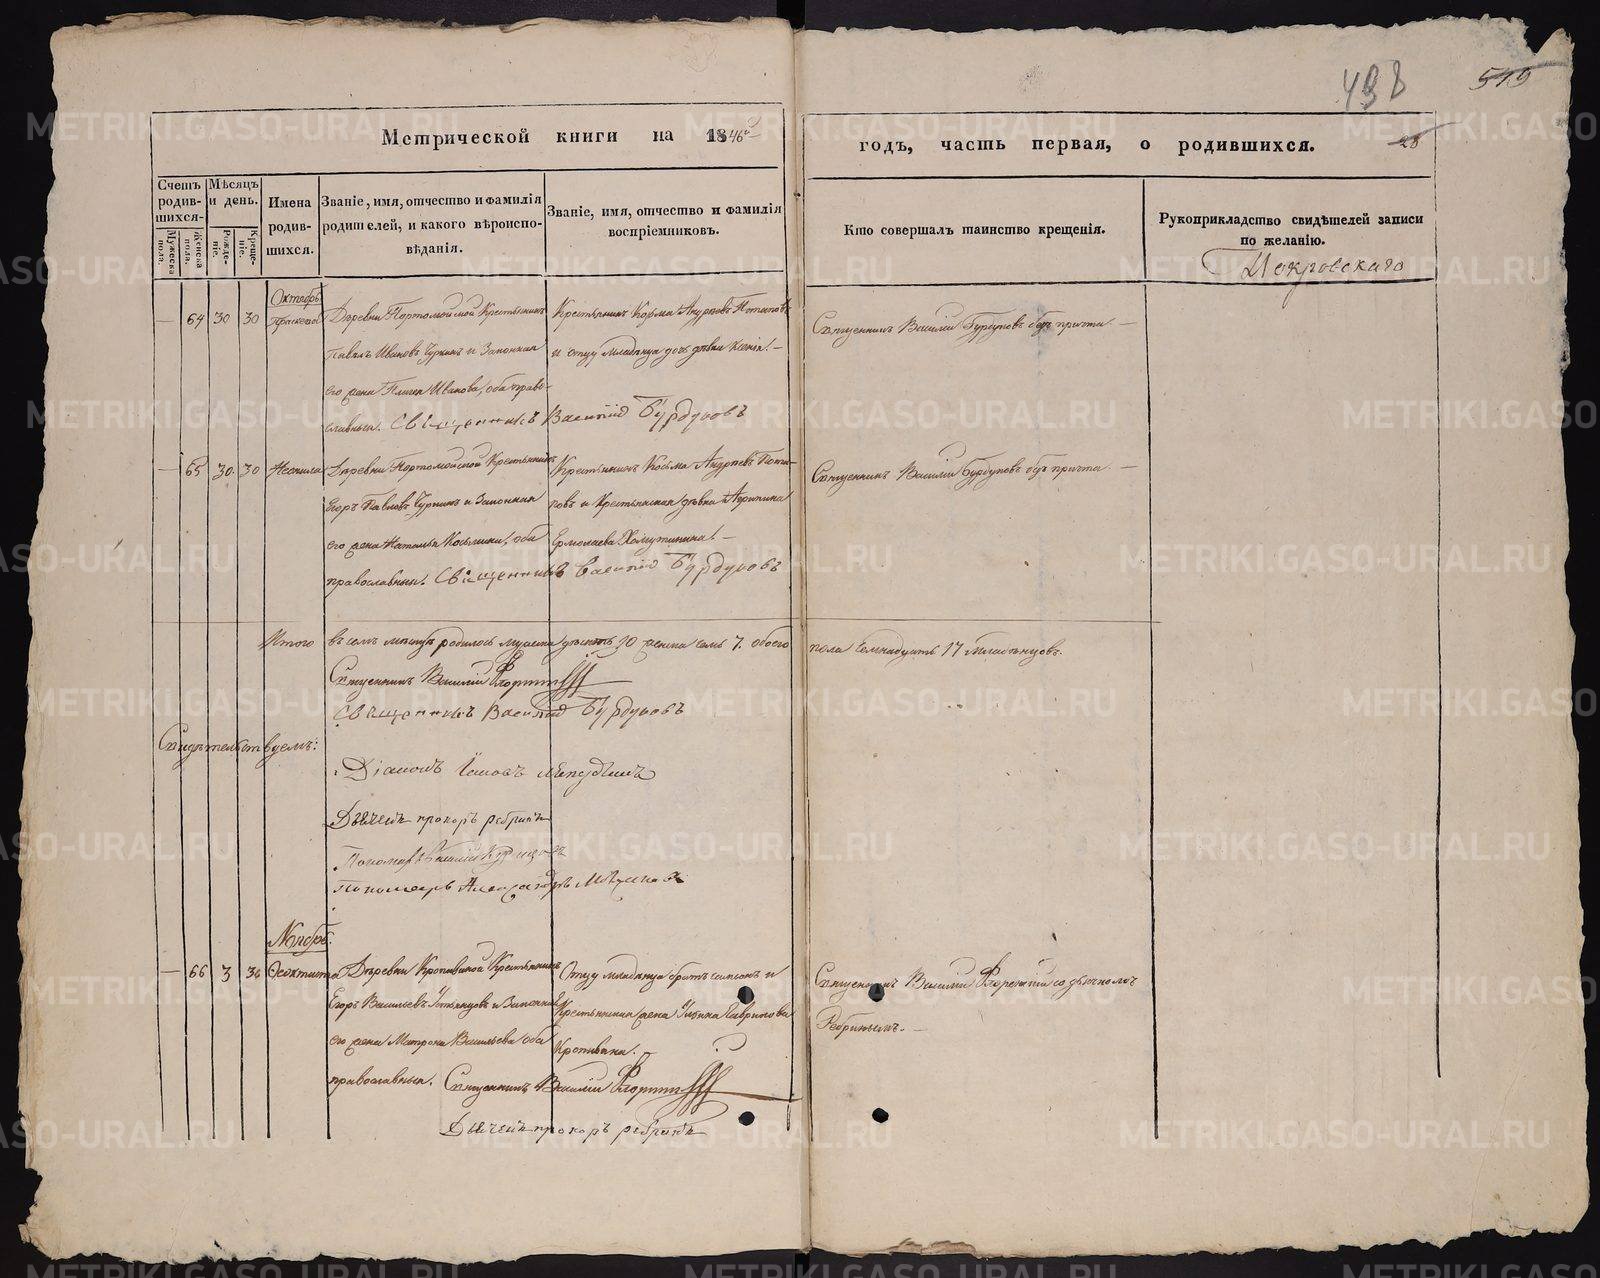 498
519
Метрической книги на 1846й
годъ, часть первая, о родившихся.
28
Счетъ родив-шихся.
Мужеска пола.
Женска пола.
Мѣсяцъ и день.
Рожде-ніе.
Креще-ніе.
Имена родив-шихся.
Званіе, имя, отчество и фамилія
родителей, и какого вѣроиспо-
вѣданія.
Званіе, имя, отчество и фамилія
воспріемниковъ.
Кто совершалъ таинство крещенія.
Рукоприкладство свидѣтелей записи
по желанію.
Покровскаго
Октябрь
— 64 30 30 Праскева
Деревни Портомойской Крестьянинъ
Павелъ Ивановъ Чуркинъ и Законная
его жена Ивановa, оба право-
славныя. Священникъ Василій Бурдуковъ
Крестьянинъ Козма Андреевъ Потаповъ
и отцу младенца дочь дѣвка Ксенія. —
Священникъ Василій Бурдуковъ безъ причта. —
— 65 30 30
Деревни Портомойской Крестьянинъ
Егоръ Павловъ Чуркинъ и Законная
его жена Наталья Козьмина, оба
православныя. Священникъ Василій Бурдуковъ
Крестьянинъ Косьма Андреевъ Пота-
повъ и Крестьянская дѣвка Агрипина
Ермолаева Хомутинина. —
Священникъ Василій Бурдуковъ безъ причта. —
Итого въ семъ мѣсяцѣ родилось мужеска десять 10 женска семь 7. обоего
пола семнадцать 17 младенцовъ.
Священникъ Василій Флорентинъ
Священникъ Василій Бурдуковъ
Свидѣтельствуемъ:
Діаконъ Іаковъ
Дьячекъ прокоръ ребринъ
Пономарь Василій
Пономарь Александръ
Ноябрь.
— 66 3 Феоктиста
Деревни Кропивиной Крестьянинъ
Егоръ Васильевъ и Законная
его жена Матрона Васильева оба
православныя. Священникъ Василій
Дьячекъ прокоръ ребринъ
Отцу младенца братъ и
Крестьянская жена Гаврилова
Кропивина.
Священникъ Василій со дьячкомъ
Ребринымъ. —
METRIKI.GASO-URAL.RU